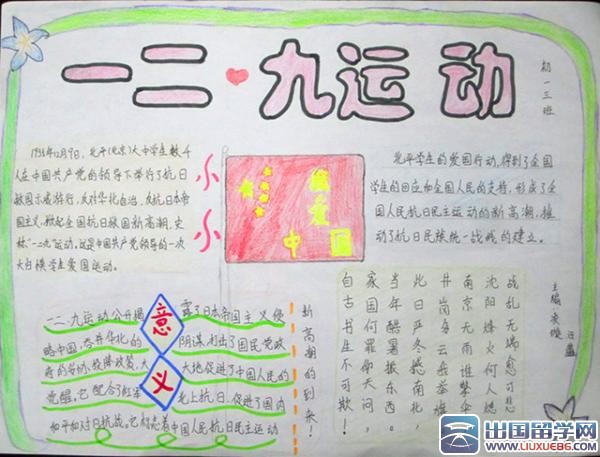 一二·九运动
初一三班
1935年12月9日,北平(北京)大中学生数千
人在中国共产党的领导下举行了抗日
救国示威游行,反对华北自治,反抗日本帝
国主义,掀起全国抗日救国新高潮,史
称“一二九”运动,这是中国共产党领导的一次
大规模学生爱国运动。
小
小
爱
中
国
北平学生的爱国行动,得到了全国
学生的回应和全国人民的支持,形成了全
国人民抗日民主运动的新高潮,推
动了抗日民族统一战线的建立。
主编
意
义
一二·九运动公开揭露了日本帝国主义侵
略中国,吞并华北的阴谋,打击了国民党政
府的妥协投降政策,大大地促进了中国人民的
觉醒,它配合了红军北上抗日,促进了国内
和平和对日抗战,它标志着中国人民抗日民主运动
新高潮的到来!
战乱无端愈可悲
沈阳烽火何人
南京无雨擎伞
井岗云谁
此日严冬撼南北,
当年酷暑东西
家国何罪天问
自古书生不可欺!
出国留学网
www.liuxue86.com